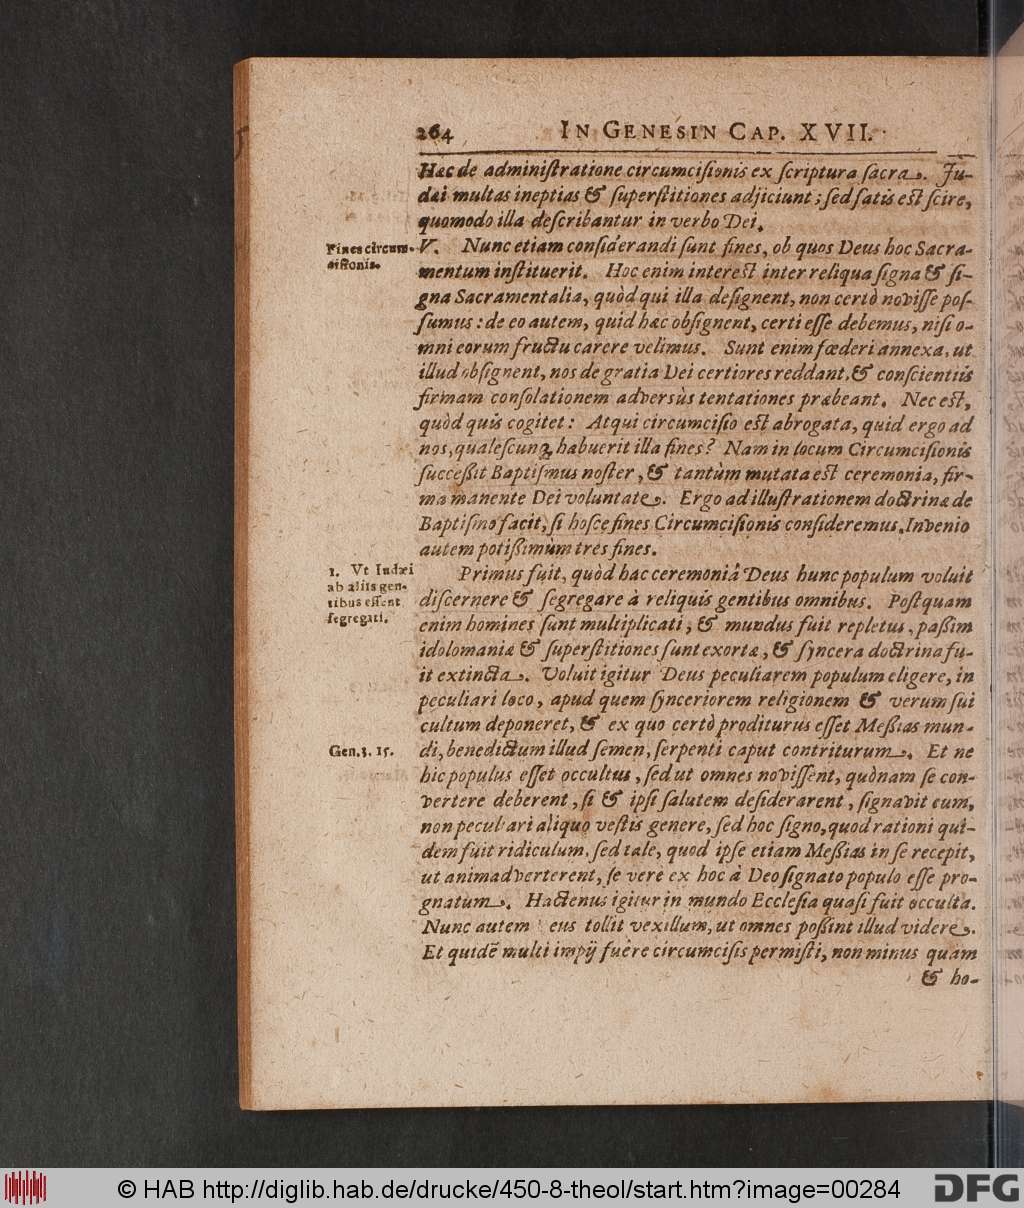 264 IN GENESIN CAP. XVII.
Hæc de administratione circumcisionis ex scriptura sacra. Ju-
dæi multas ineptias & superstitiones adjiciunt; sed satis est scire,
quomodo illa describantur in verbo Dei.
Fines circum-
cisionis.
V. Nunc etiam considerandi sunt fines, ob quos Deus hoc Sacra-
mentum instituerit. Hoc enim interest inter reliqua signa & si-
gna Sacramentalia, quòd qui illa designent, non certò novisse pos-
sumus: de eo autem, quid hæc obsignent, certi esse debemus, nisi o-
mni eorum fructu carere velimus. Sunt enim fœderi annexa, ut
illud obsignent, nos de gratia Dei certiores reddant, & conscientiis
firmam consolationem adversùs tentationes præbeant. Nec est,
quòd quis cogitet: Atqui circumcisio est abrogata, quid ergo ad
nos, qualescunq; habuerit illa fines? Nam in locum Circumcisionis
successit Baptismus noster, & tantùm mutata est ceremonia, fir-
ma manente Dei voluntate. Ergo ad illustrationem doctrinæ de
Baptismo facit, si hosce fines Circumcisionis consideremus. Invenio
autem potissimùm tres fines.
1. Vt Iudæi
ab aliis gen-
tibus essent
segregati.
Primus fuit, quòd hac ceremoniâ Deus hunc populum voluit
discernere & segregare à reliquis gentibus omnibus. Postquam
enim homines sunt multiplicati, & mundus fuit repletus, passim
idolomaniæ & superstitiones sunt exortæ, & syncera doctrina fu-
it extincta. Voluit igitur Deus peculiarem populum eligere, in
peculiari loco, apud quem synceriorem religionem & verum sui
cultum deponeret, & ex quo certò proditurus esset Messias mun-
Gen. 3. 15.
di, benedictum illud semen, serpenti caput contriturum. Et ne
hic populus esset occultus, sed ut omnes novissent, quònam se con-
vertere deberent, si & ipsi salutem desiderarent, signavit eum,
non peculiari aliquo vestis genere, sed hoc signo, quod rationi qui-
dem fuit ridiculum, sed tale, quod ipse etiam Messias in se recepit,
ut animadverterent, se vere ex hoc à Deo signato populo esse pro-
gnatum. Hactenus igitur in mundo Ecclesia quasi fuit occulta.
Nunc autem eus tollit vexillum, ut omnes possint illud videre.
Et quidẽ multi impij fuêre circumcisis permisti, non minus quam
& ho-
© HAB http://diglib.hab.de/drucke/450-8-theol/start.htm?image=00284
DFG